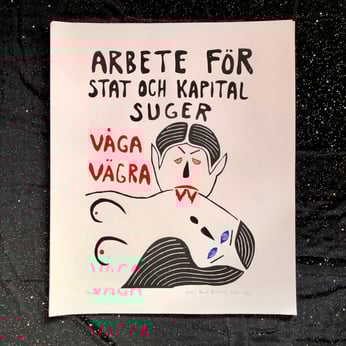 ARBETE FÖR
STAT OCH KAPITAL
SUGER
VÅGA
VÄGRA
VÅGA
VÄGRA
VÄGRA